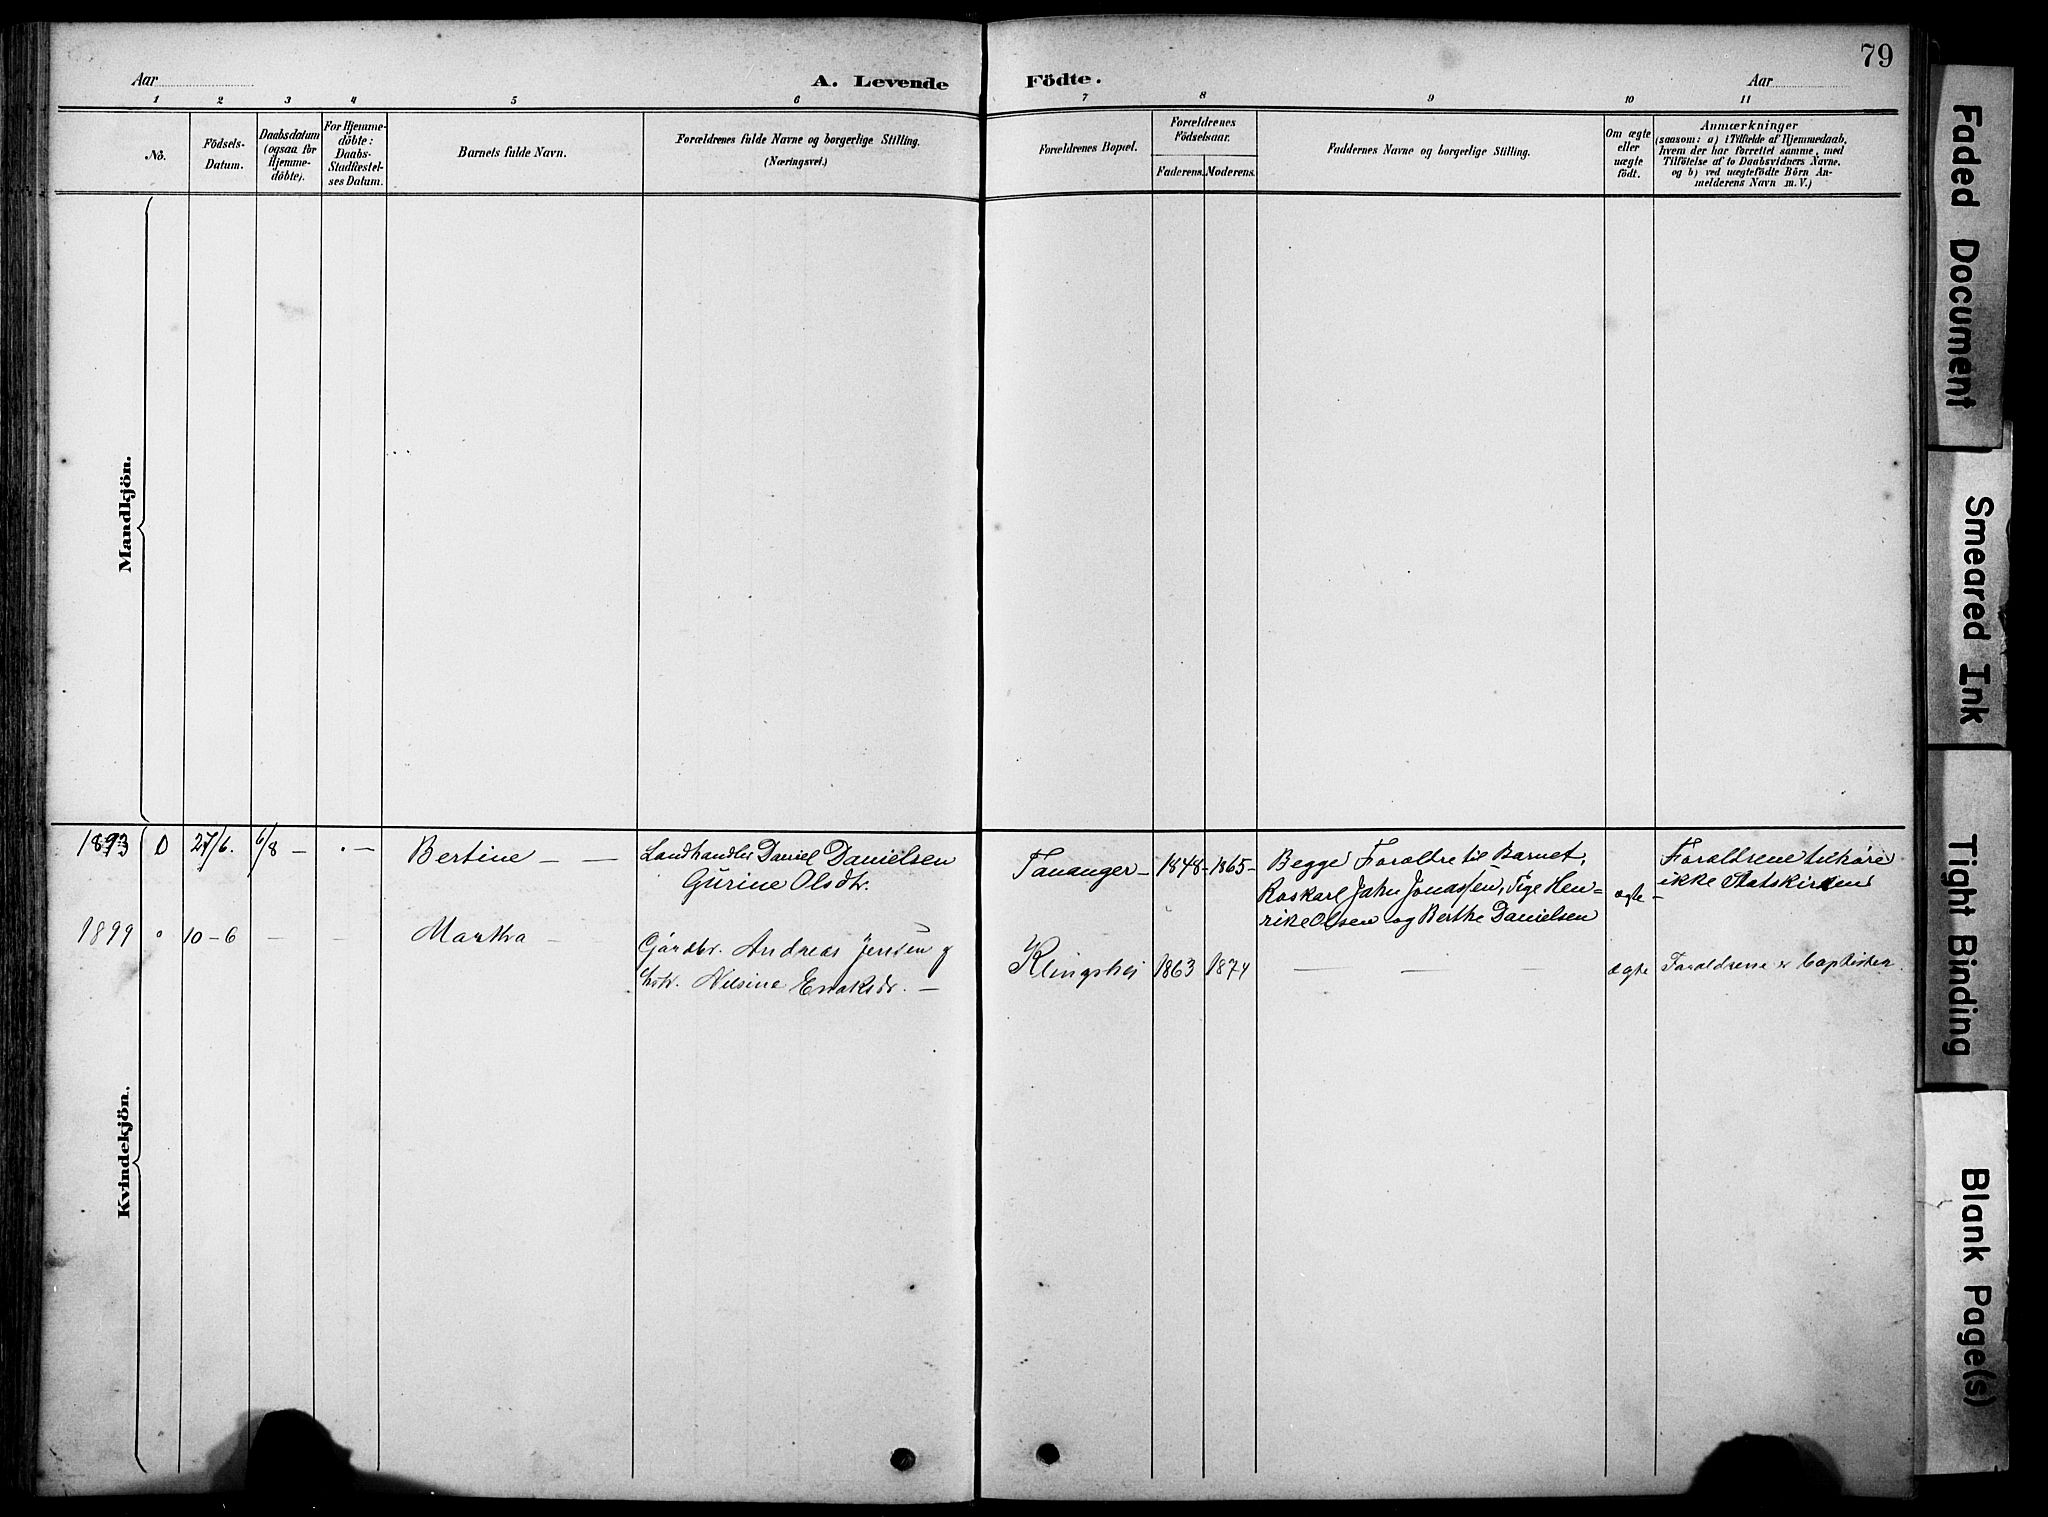 79
Aar
A. Levende Födte.
Aar
1 2 3 4 5 6 7 8 9 10 11
No.
Födsels-
Datum.
Daabsdatum
(ogsaa for
Hjemme-
döbte).
For Hjemme-
döbte:
Daabs-
Stadfæstel-
ses Datum.
Barnets fulde Navn.
Forældrenes fulde Navne og borgerlige Stilling.
(Næringsvei.)
Forældrenes Bopæl.
Forældrenes
Födselsaar.
Faderens. Moderens.
Faddernes Navne og borgerlige Stilling.
Om ægte
eller
uægte
födt.
Anmærkninger
(saasom: a) i Tilfælde af Hjemmedaab,
hvem der har forrettet samme, med
Tilföielse af to Daabsvidners Navne.
og b) ved uægtefödte Börn An-
melderens Navn m. V.)
Mandkjön.
Kvindekjön.
1893 0 27/6. 6/8 - - Bertine - -
Landhandler Daniel Danielsen
Gurine Olsdtr.
Tananger - 1848 - 1865 -
Begge Foraldre til Barnet,
Kaskarl Jahn Jonassen, Pige Hen-
rike Olsen og Berthe Danielsen
ægte -
Foraldrene tilhøre
ikke Statskirken
1899 10-6 - - Martha -
Gardbr. Andreas Jensen og
Hstr. Nilsine Enoksdr. -
Klingshei 1863 1874 - - -
ægte
Foraldrene er Baptister
Faded Document
Smeared Ink
Tight Binding
Blank Page(s)